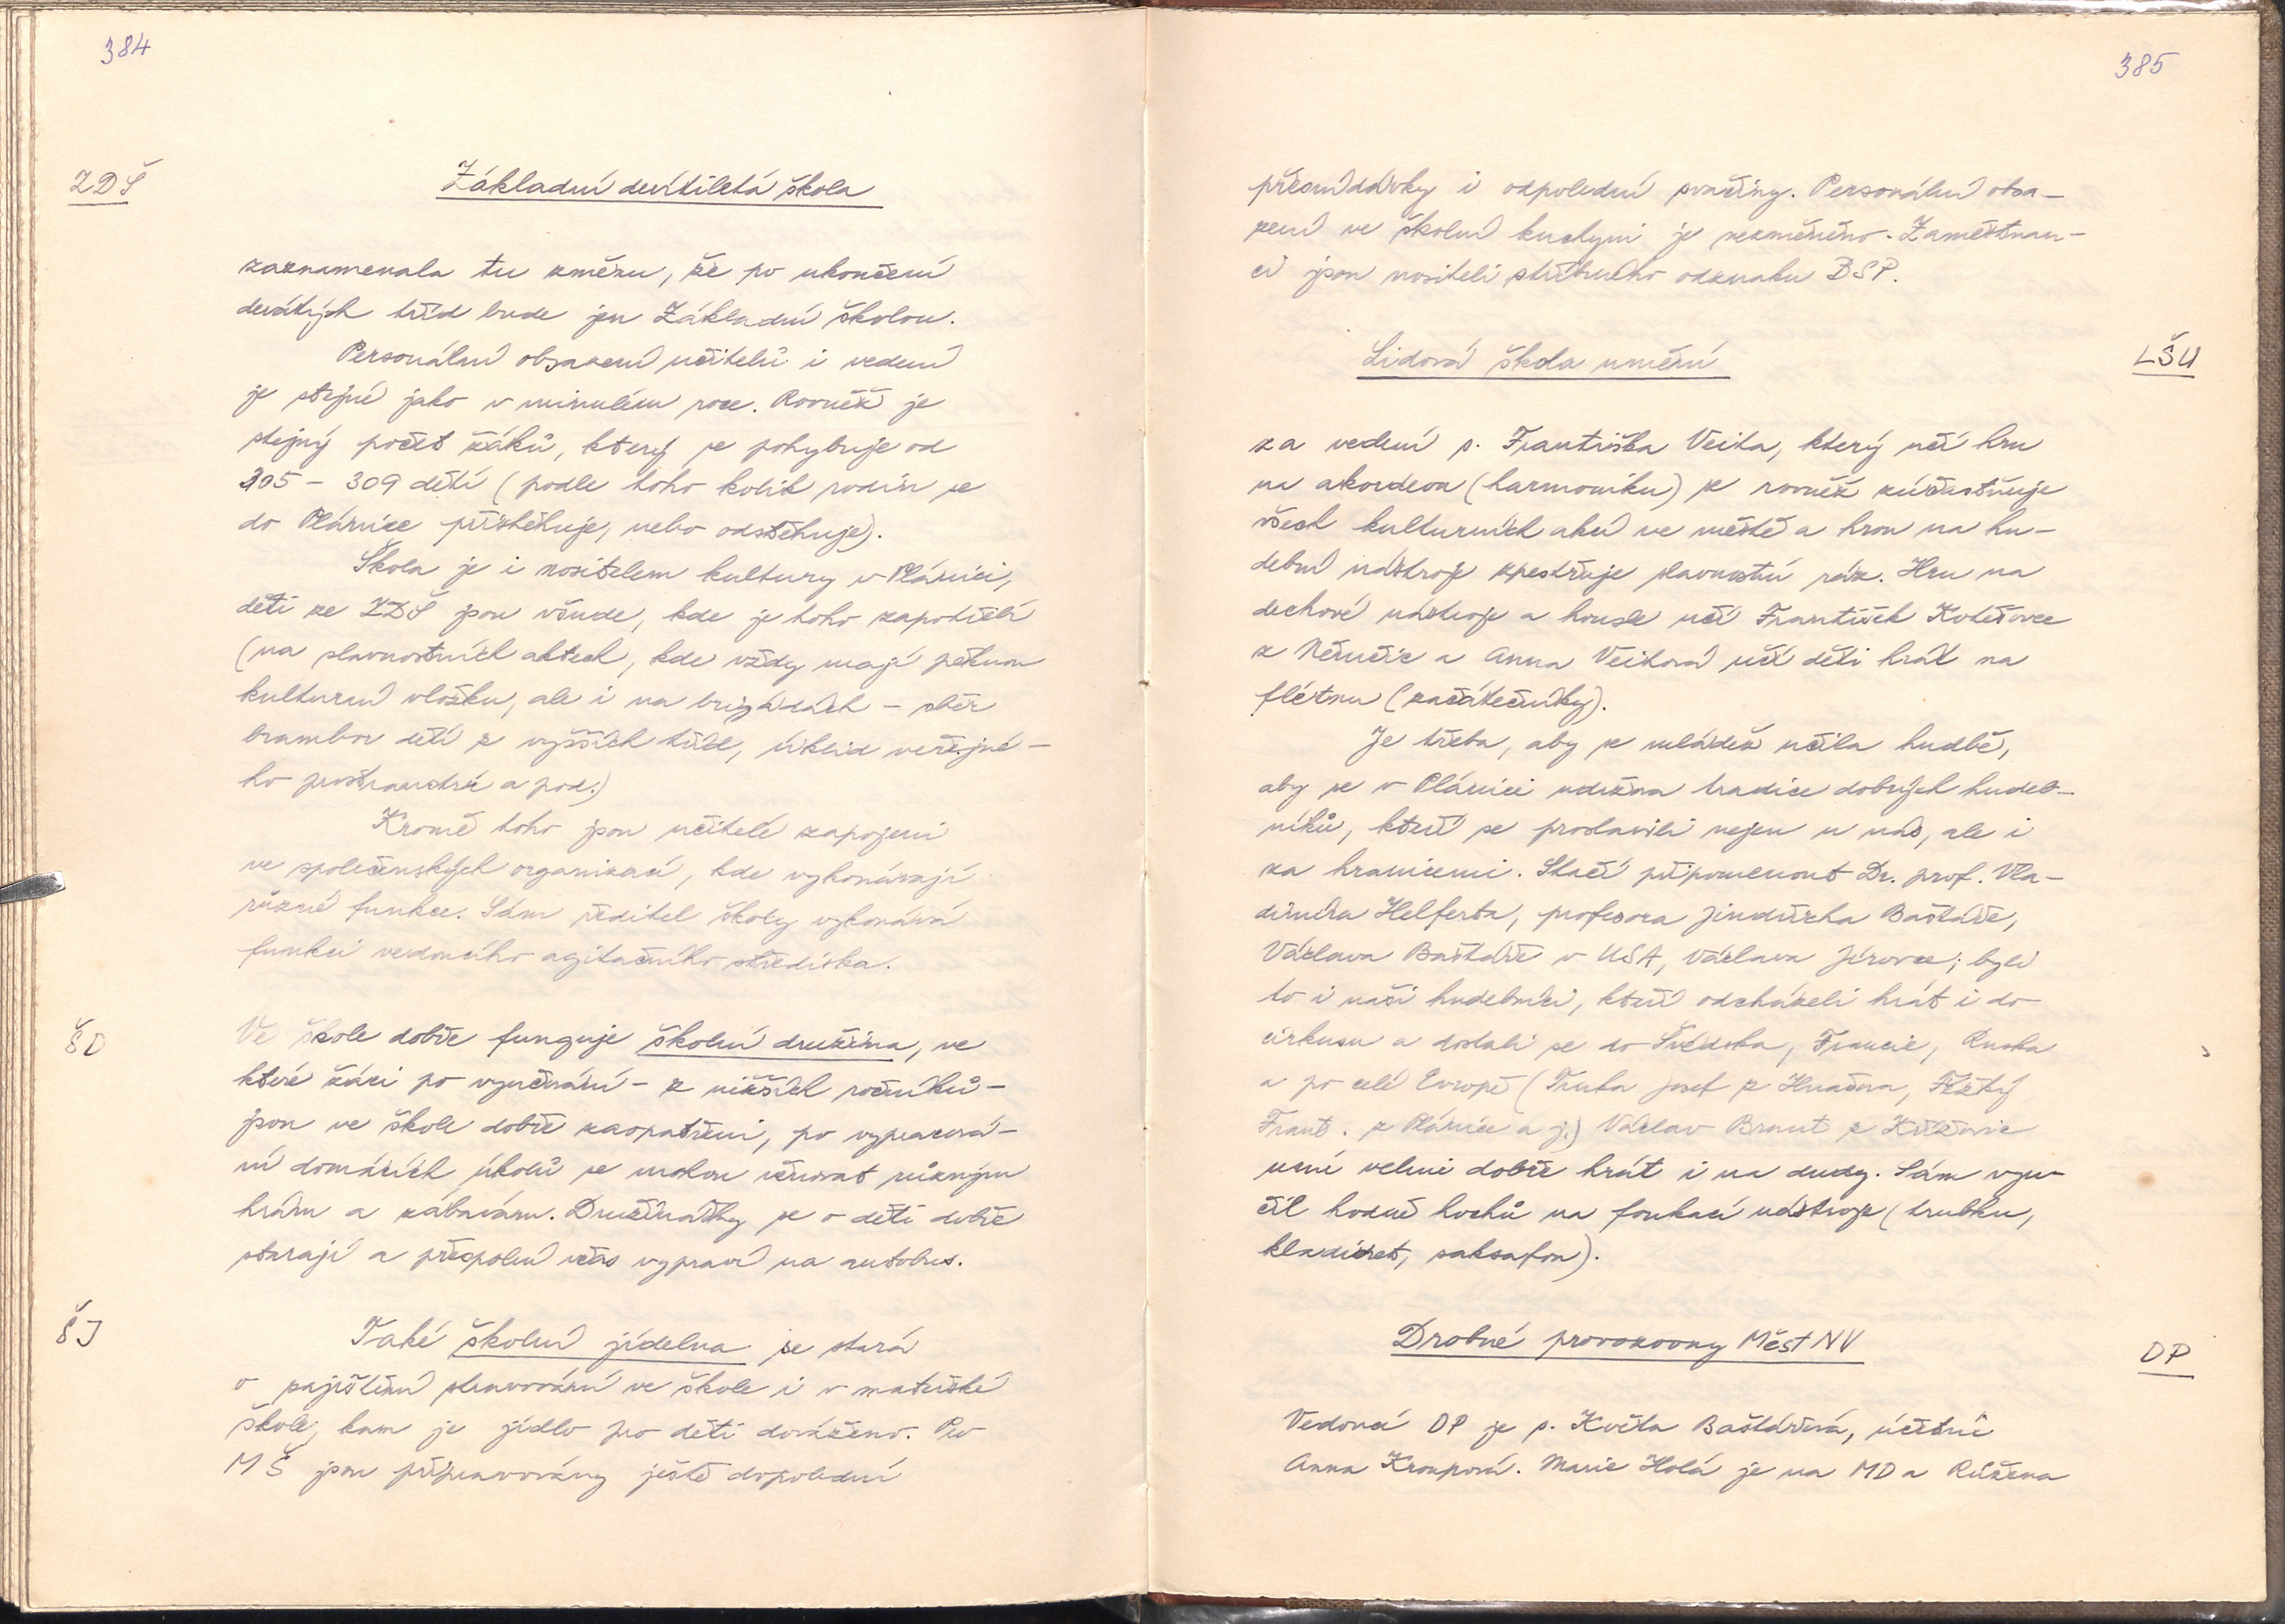 384
ZDŠ
Základní devítiletá škola
zaznamenala tu změnu, že po ukončení
devátých tříd bude jen Základní školou.
Personální obsazení učitelů i vedení
je stejné jako v minulém roce. Rovněž je
stejný počet žáků, který se pohybuje od
305 - 309 dětí (podle toho kolik rodin se
do Plánice přistěhuje, nebo odstěhuje).
Škola je i nositelem kultury v Plánici,
děti ze ZDŠ jsou všude, kde je toho zapotřebí
(na slavnostních aktech, kde vždy mají pěknou
kulturní vložku, ale i na brigádách - sběr
brambor dětí z vyšších tříd, úklid veřejné-
ho prostranství a pod.)
Kromě toho jsou učitelé zapojeni
ve společenských organizací, kde vykonávají
různé funkce. Sám ředitel školy vykonává
funkci vedoucího agitačního střediska.
ŠD
Ve škole dobře funguje školní družina, ve
které žáci po vyučování - z nižších ročníků -
jsou ve škole dobře zaopatřeni, po vypracová-
ní domácích úkolů se mohou věnovat různým
hrám a zábavám. Družinářky se o děti dobře
starají a přespolní včas vypraví na autobus.
ŠJ
Také školní jídelna se stará
o zajištění stravování ve škole i v mateřské
škole, kam je jídlo pro děti dováženo. Pro
MŠ jsou připravovány ještě dopolední
385
přesnídávky i odpolední svačiny. Personální obsa-
zení ve školní kuchyni je nezměněno. Zaměstnan-
ci jsou nositeli stříbrného odznaku BSP.
Lidová škola umění
LŠU
za vedení s. Františka Veita, který učí hru
na akordeon (harmoniku) se rovněž zúčastňuje
všech kulturních akcí ve městě a hrou na hu-
dební nástroje zpestřuje slavnostní ráz. Hru na
dechové nástroje a housle učí František Kotěšovec
z Němčic a Anna Veitová učí děti hrát na
flétnu (začátečníky).
Je třeba, aby se mládež učila hudbě,
aby se v Plánici udržna tradice dobrých hudeb-
níků, kteří se proslavili nejen u nás, ale i
za hranicemi. Stačí připomenout Dr. prof. Vla-
dimíra Helferta, profesora Jindřicha Baštáře,
Václava Baštáře v USA, Václava Jírovce; byli
to i naši hudebníci, kteří odcházeli hrát i do
cirkusu a dostali se do Švédska, Francie, Ruska
a po celé Evropě (Truka Josef z Hnačova, Těžký
Frant. z Plánice a j.) Václav Brant z Křížovic
umí velmi dobře hrát i na dudy. Sám vyu-
čil hodně hochů na foukací nástroje (trubku,
klarinet, saksafon).
Drobné provozovny Měst NV
DP
Vedoucí DP je s. Květa Baštářová, účetní
Anna Kroupová. Marie Holá je na MD a Růžena